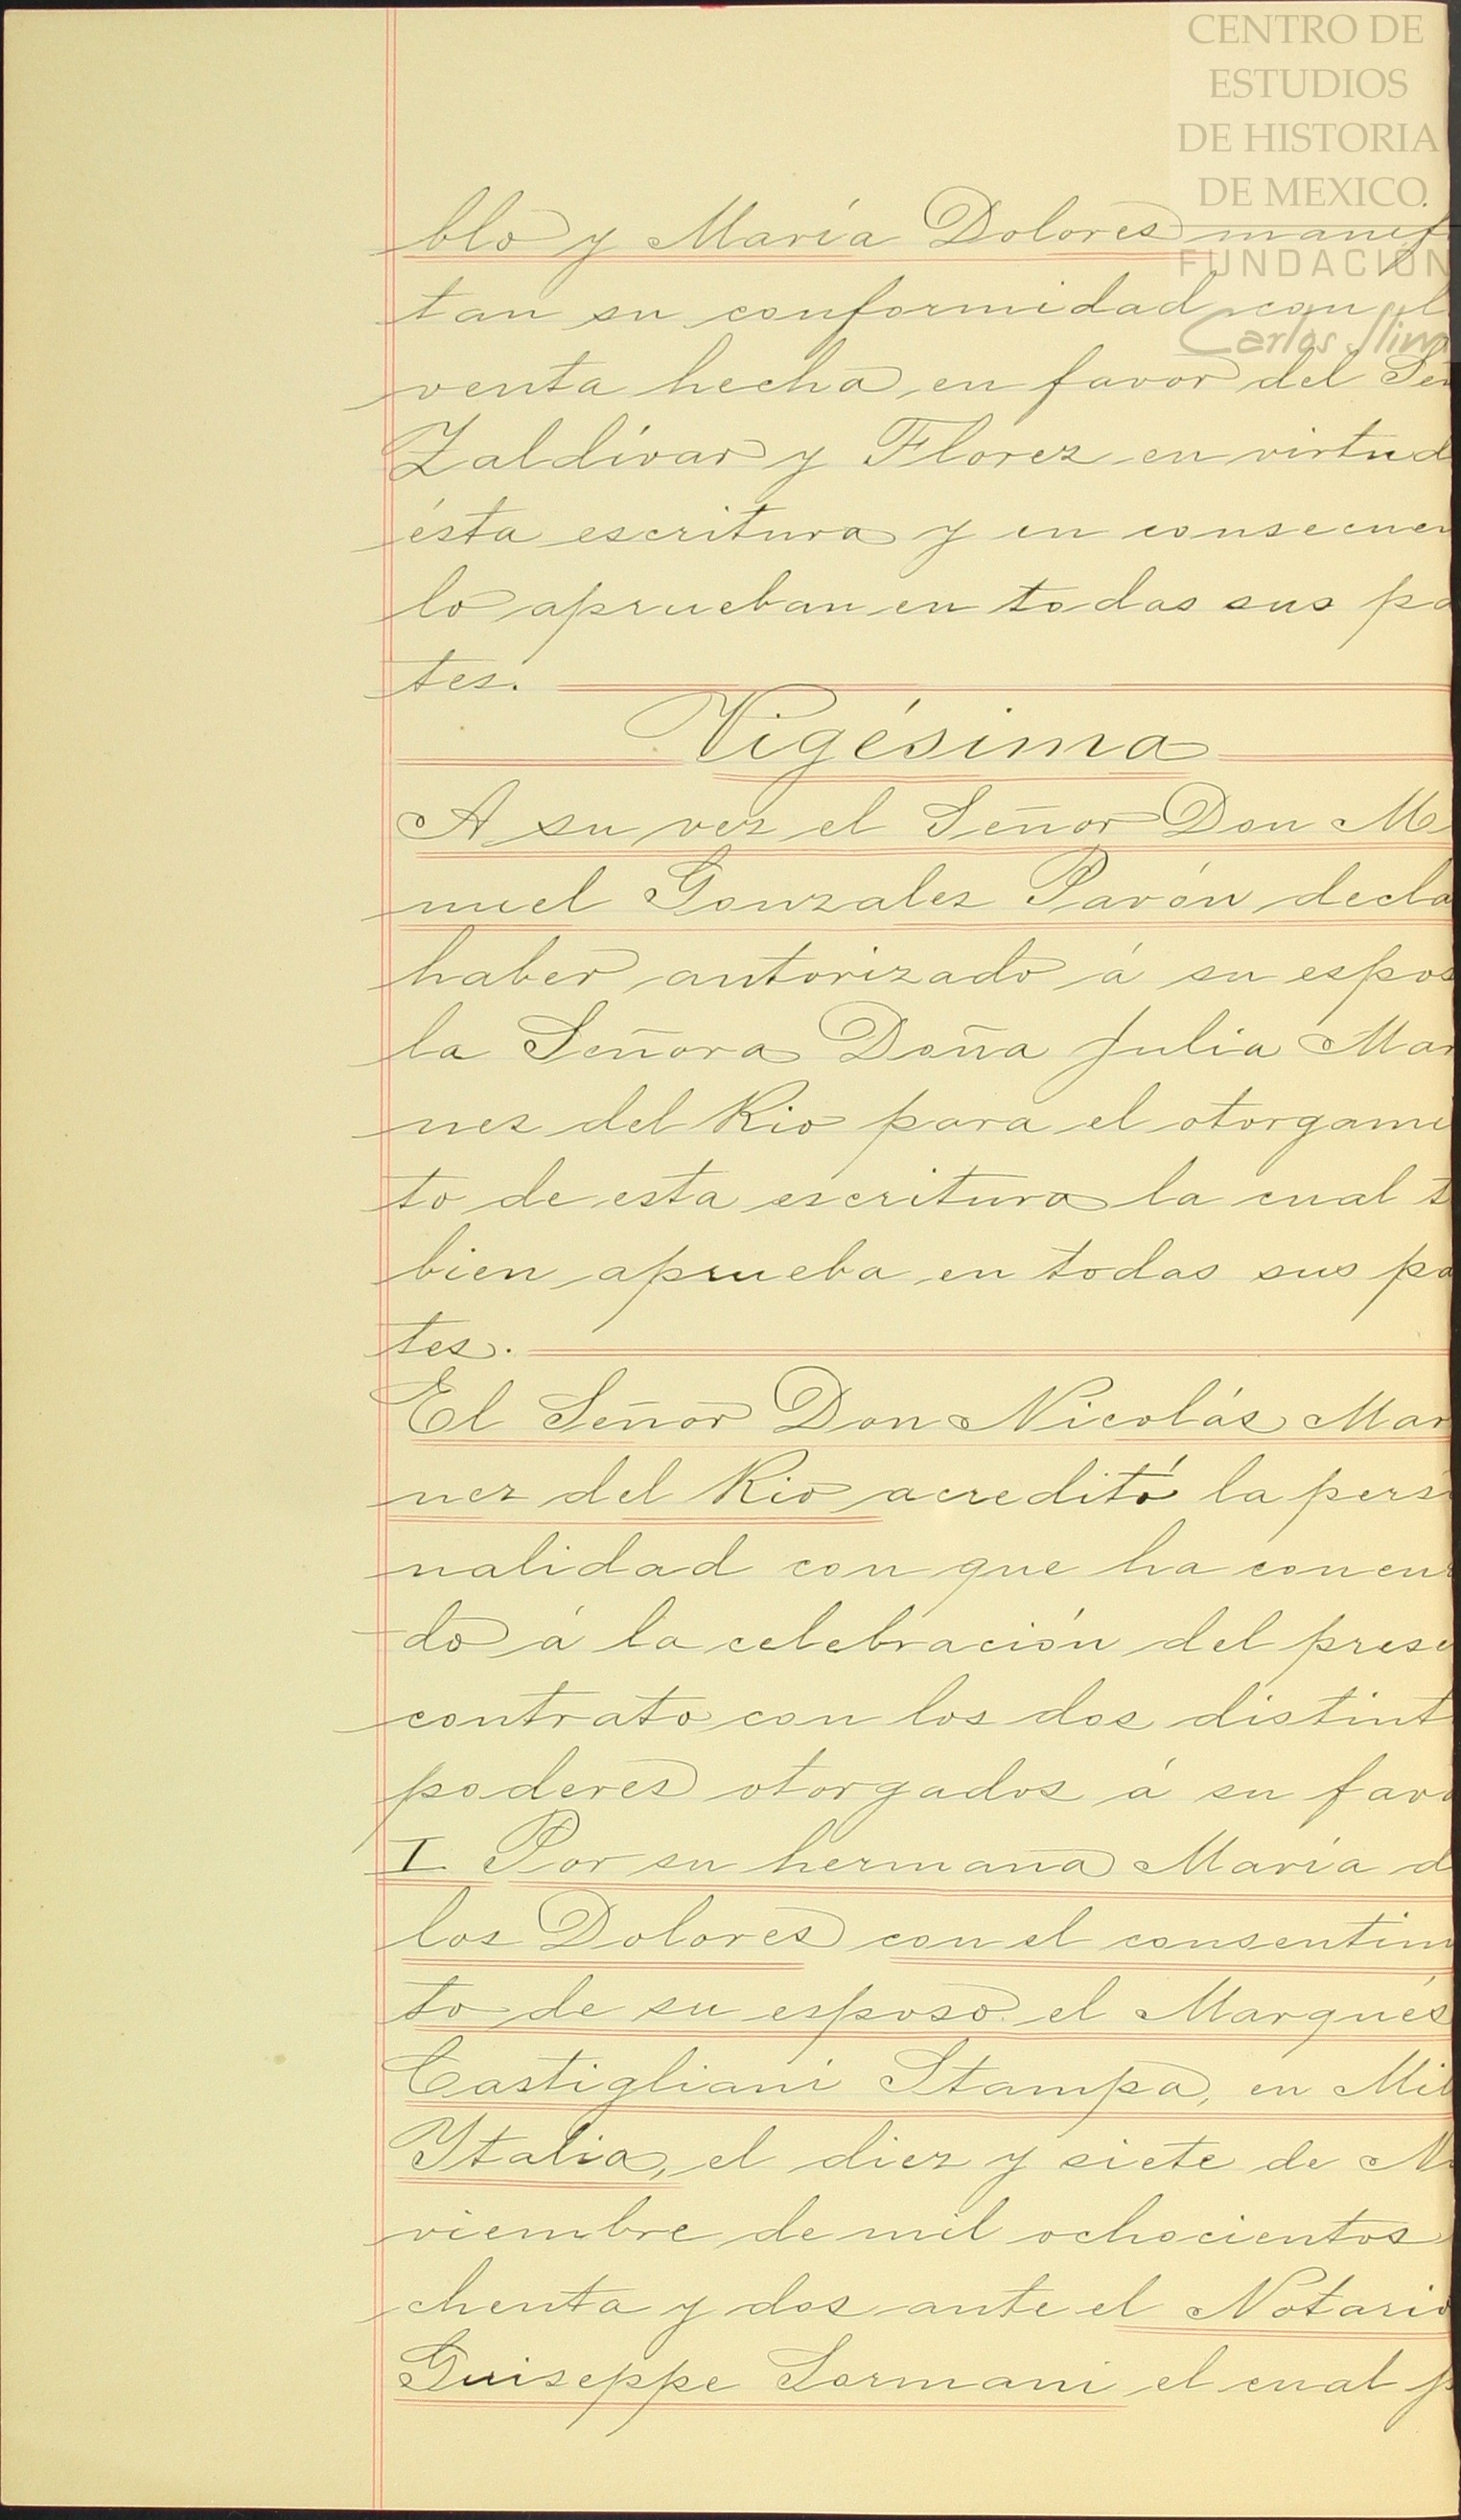 CENTRO DE
ESTUDIOS
DE HISTORIA
DE MEXICO.
FUNDACIÓN
Carlos Slim
blo y María Dolores manif
tan su conformidad con l
venta hecha en favor del Señ
Zaldívar y Florez en virtud
ésta escritura y en consecuen
lo aprueban en todas sus pa
tes.
Vigésima
A su vez el Señor Don Ma
nuel Gonzalez Pavón decla
haber autorizado á su espos
la Señora Doña Julia Mar
nez del Rio para el otorgami
to de esta escritura la cual t
bien aprueba en todas sus pa
tes.
El Señor Don Nicolás Mar
nez del Rio acreditó la perso
nalidad con que ha concur
do á la celebración del prese
contrato con los dos distint
poderes otorgados á su favo
I. Por su hermana María d
los Dolores con el consentim
to de su esposo el Marqués
Castigliani Stampa, en Mil
Italia, el diez y siete de No
viembre de mil ochocientos
chenta y dos ante el Notario
Guiseppe Sormani el cual p